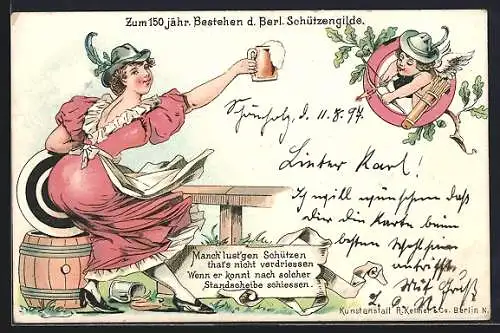 Zum 150 jähr. Bestehen d. Berl. Schützengilde.
Schönholz, d. 11.8.97
Lieber Karl!
Ich will wünschen daß
dir die Karte beim
besten Wohlsein
antrifft.
Mit Gruß
Manch' lust'gen Schützen
that's nicht verdriessen
Wenn er könnt nach solcher
Standscheibe schiessen.
Kunstanstalt R. & Co. Berlin N.